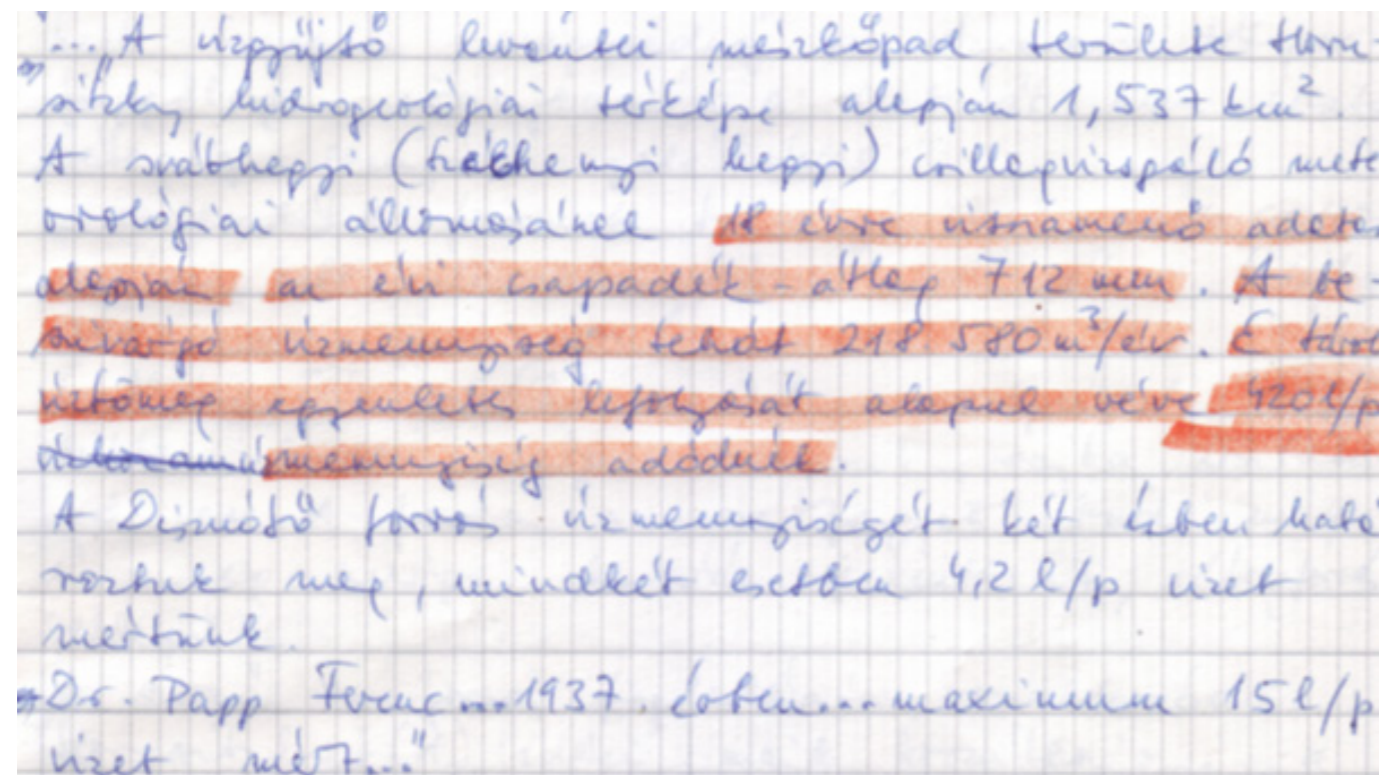 "... A vízgyűjtő levantei mészkőpad területe Horu-
sitzky hidrogeológiai térképe alapján 1,537 km².
A svábhegyi (Széchenyi hegyi) csillagvizsgáló mete
orológiai állomásának 18 évre visszamenő adatai
alapján az évi csapadék-átlag 712 mm. A be-
szivárgó vízmennyiség tehát 218 580 m³/év. E tárolt
víztömeg egyenletes lefolyását alapul véve 420 l/p
vízmennyiség adódnék.
A Disznófő forrás vízmennyiségét két ízben hatá
roztuk meg, mindkét esetben 4,2 l/p vizet
mértünk.
Dr. Papp Ferenc...1937. évben...maximum 15 l/p
vizet mért..."